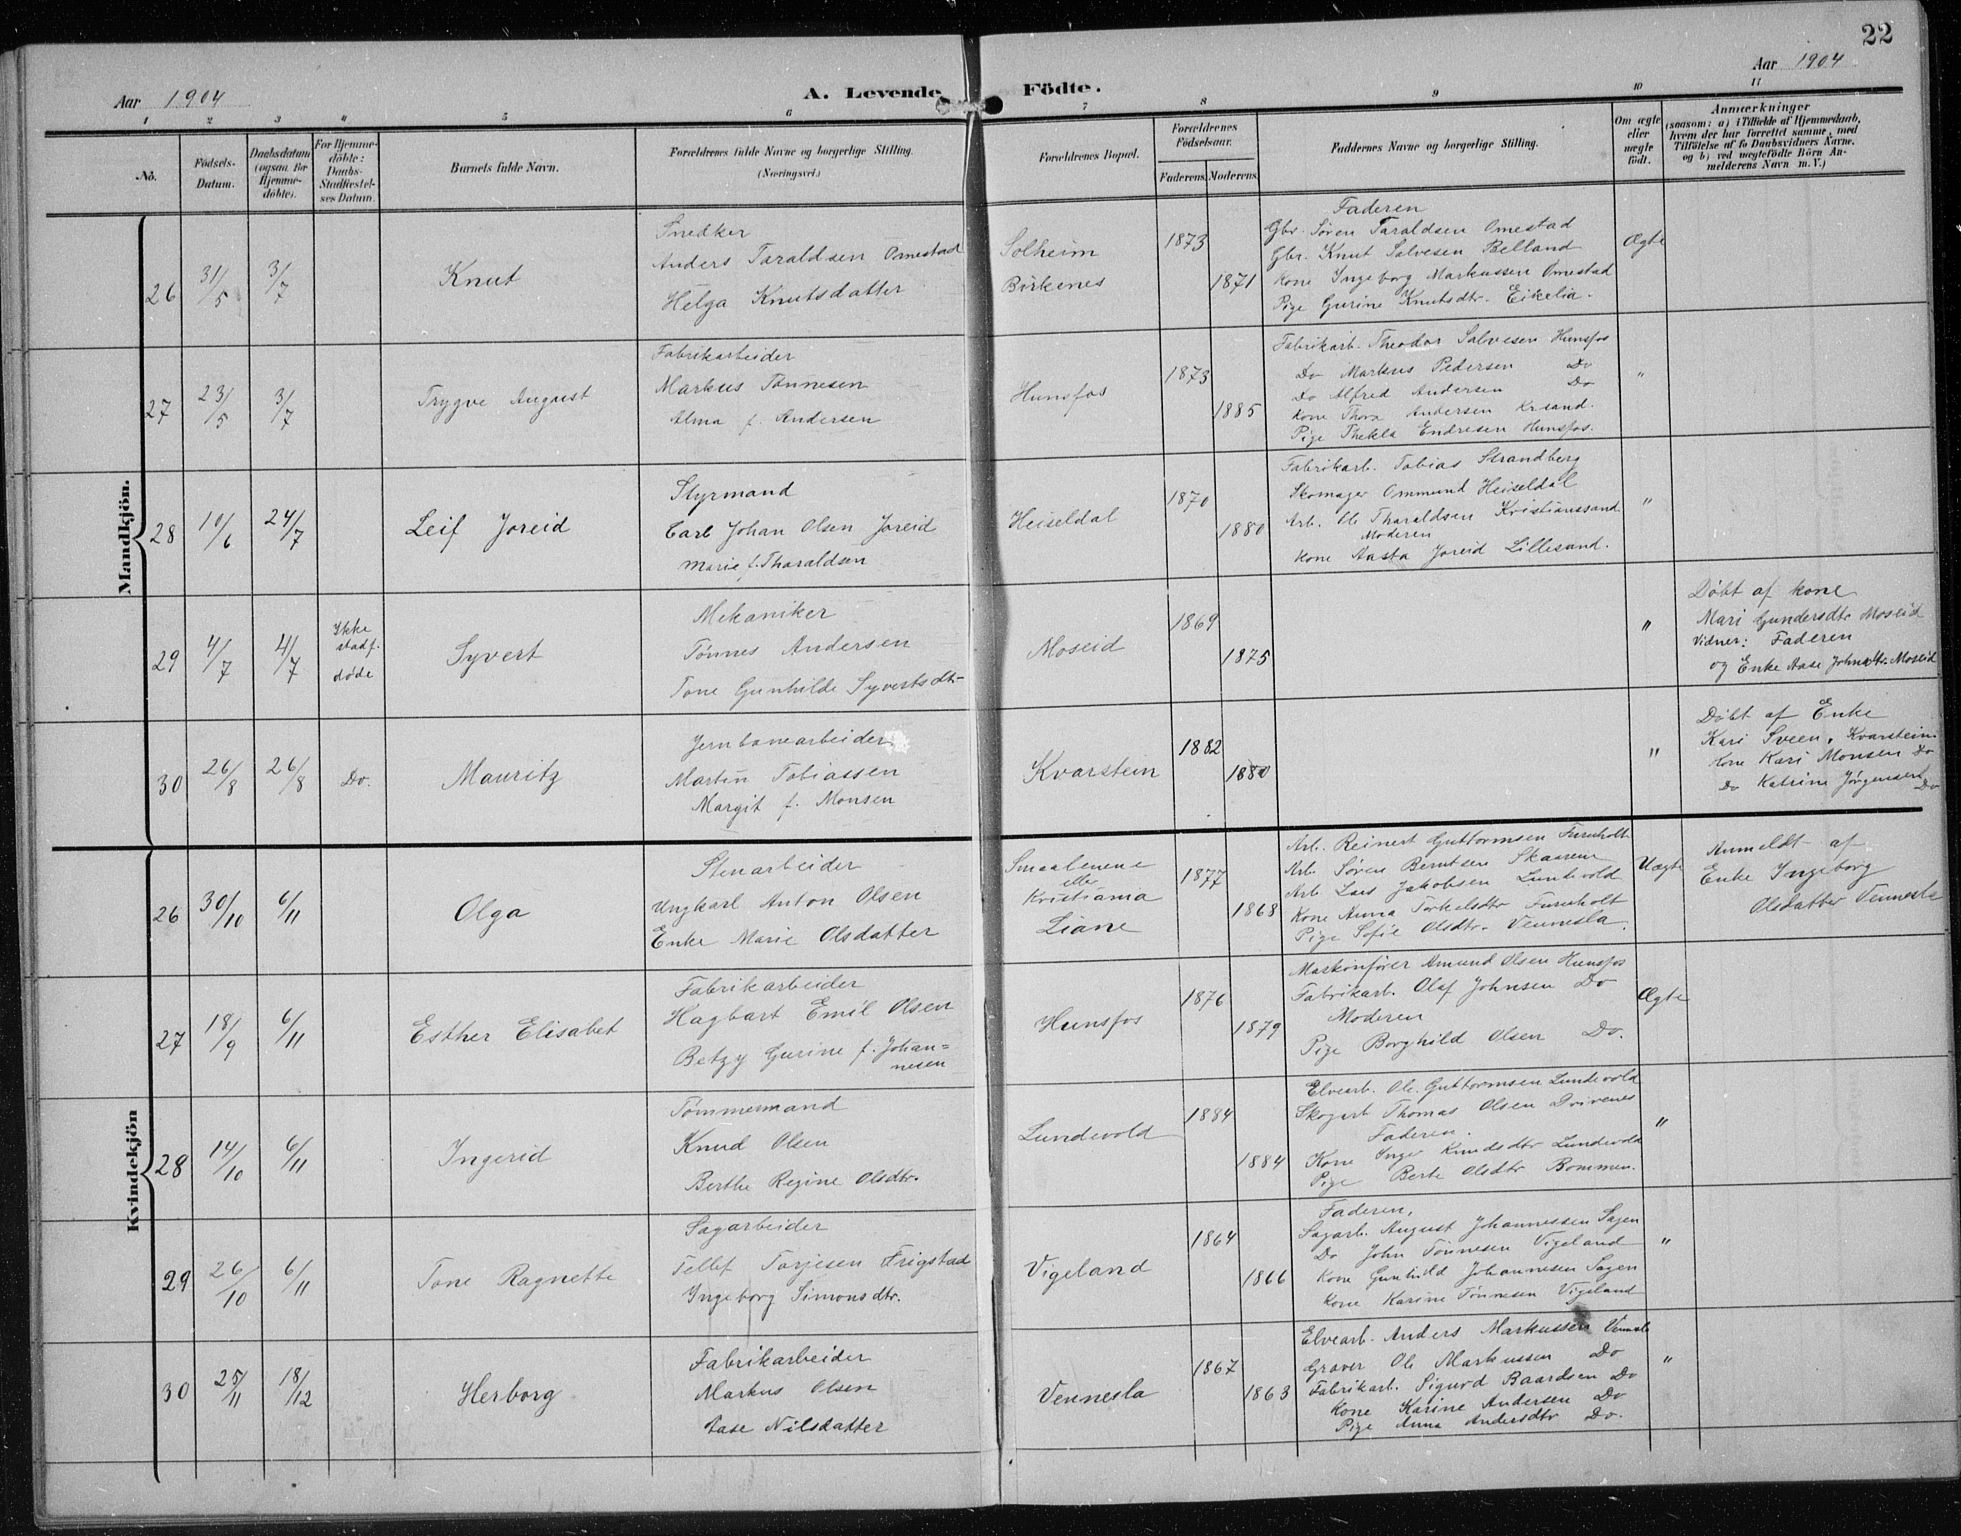 22
Aar 1904
A. Levende
Födte.
Aar 1904
1 2 3 4 5 6 7 8 9 10 11
No.
Födsels-
Datum.
Daabsdatum
(ogsaa for
Hjemme-
döbte).
For Hjemme-
döbte:
Daabs-
Stadfæstel-
ses Datum.
Barnets fulde Navn.
Forældrenes fulde Navne og borgerlige Stilling.
(Næringsvei.)
Forældrenes Bopæl.
Forældrenes
Födselsaar.
Faderens. Moderens.
Faddernes Navne og borgerlige Stilling.
Om ægte
eller
uægte
födt.
Anmærkninger
(saasom: a) i Tilfælde af Hjemmedaab,
hvem der har forrettet samme, med
Tilföielse af to Daabsvidners Navne.
og b) ved uægtefödte Börn An-
melderens Navn m. V.)
Mandkjön.
26
31/5
3/7
Knut
Snedker
Anders Taraldsen Omestad
Helga Knutsdatter
Solheim
Birkenes
1873
1871
Faderen
Gbr. Søren Taraldsen Omestad
Gbr. Knut Salvesen Belland
Kone Ingeborg Markussen Omestad
Pige Gurine Knutsdtr. Eikelia.
Ægte
27
23/5
3/7
Trygve August
Fabrikarbeider
Markus Tønnesen
Alma f. Andersen
Hunsfos
1873
1885
Fabrikarb. Theodor Salvesen Hunsfos
Do Markus Pedersen Do
Do Alfred Andersen Do
Kone Thora Andersen Krsand.
Pige Thekla Endresen Hunsfos.
"
28
10/6
24/7
Leif Joreid
Styrmand
Carl Johan Olsen Joreid
Marie f. Tharaldsen
Heiseldal
1870
1880
Fabrikarb. Tobias Strandberg
Skomager Ommund Heiseldal
Arb. Ole Tharaldsen Kristianssand
Moderen
Kone Aasta Joreid Lillesand.
"
29
4/7
4/7
Ikke
stadf.
døde
Syvert
Mekaniker
Tønnes Andersen
Tone Gunhilde Syvertsdtr
Moseid
1869
1875
"
Døbt af kone
Mari Gundersdtr Moseid
Vidner: Faderen
og Enke Aase Johnsdtr. Moseid
30
26/8
26/8
Do.
Mauritz
Jernbanearbeider
Martin Tobiassen
Margit f. Monsen
Kvarstein
1882
1880
"
Døbt af Enke
Kari Sveen, Kvarstein
Kone Kari Monsen Do
Do Katrine Jørgensen Do
Kvindekjön
26
30/10
6/11
Olga
Stenarbeider
Ungkarl Anton Olsen
Enke Marie Olsdatter
Smaalenene
eller
Kristiania
Liane
1877
1868
Arb. Reinert Guttormsen Furuholt
Arb. Søren Berntsen Skaaren
Arb Lars Jakobsen Lundevold
Kone Anna Torkelsdtr Furuholt
Pige Sofie Olsdtr. Vennesla.
Uægte
Anmeldt af
Enke Ingeborg
Olsdatter Vennesla
27
18/9
6/11
Esther Elisabet
Fabrikarbeider
Hagbart Emil Olsen
Betzy Gurine f. Johan=
nesen
Hunsfos
1876
1879
Maskinfører Amund Olsen Hunsfos
Fabrikarb. Olaf Johnsen Do
Moderen
Pige Borghild Olsen Do.
Ægte
28
14/10
6/11
Ingerid
Tømmermand
Knud Olsen
Berthe Regine Olsdtr.
Lundevold
1884
1884
Elvearb. Ole Guttormsen Lundevold
Skogarb Thomas Olsen Drivenes
Faderen.
Kone Inger Knudsdtr Lundevold
Pige Berte Olsdtr Bommen.
"
29
26/10
6/11
Tone Ragnette
Sagarbeider
Tellef Torjesen Frigstad
Ingeborg Simonsdtr.
Vigeland
1864
1866
Faderen,
Sagarb. August Johannessen Sagen
Do John Tønnesen Vigeland
Kone Gunhild Johannesen Sagen
Kone Karine Tønnesen Vigeland
"
30
25/11
18/12
Herborg
Fabrikarbeider
Markus Olsen
Aase Nilsdatter
Vennesla
1867
1863
Elvearb. Anders Markussen Vennesla
Graver Ole Markussen Do
Fabrikarb. Sigurd Baardsen Do
Kone Karine Andersen Do
Pige Anna Andersdtr Do.
"